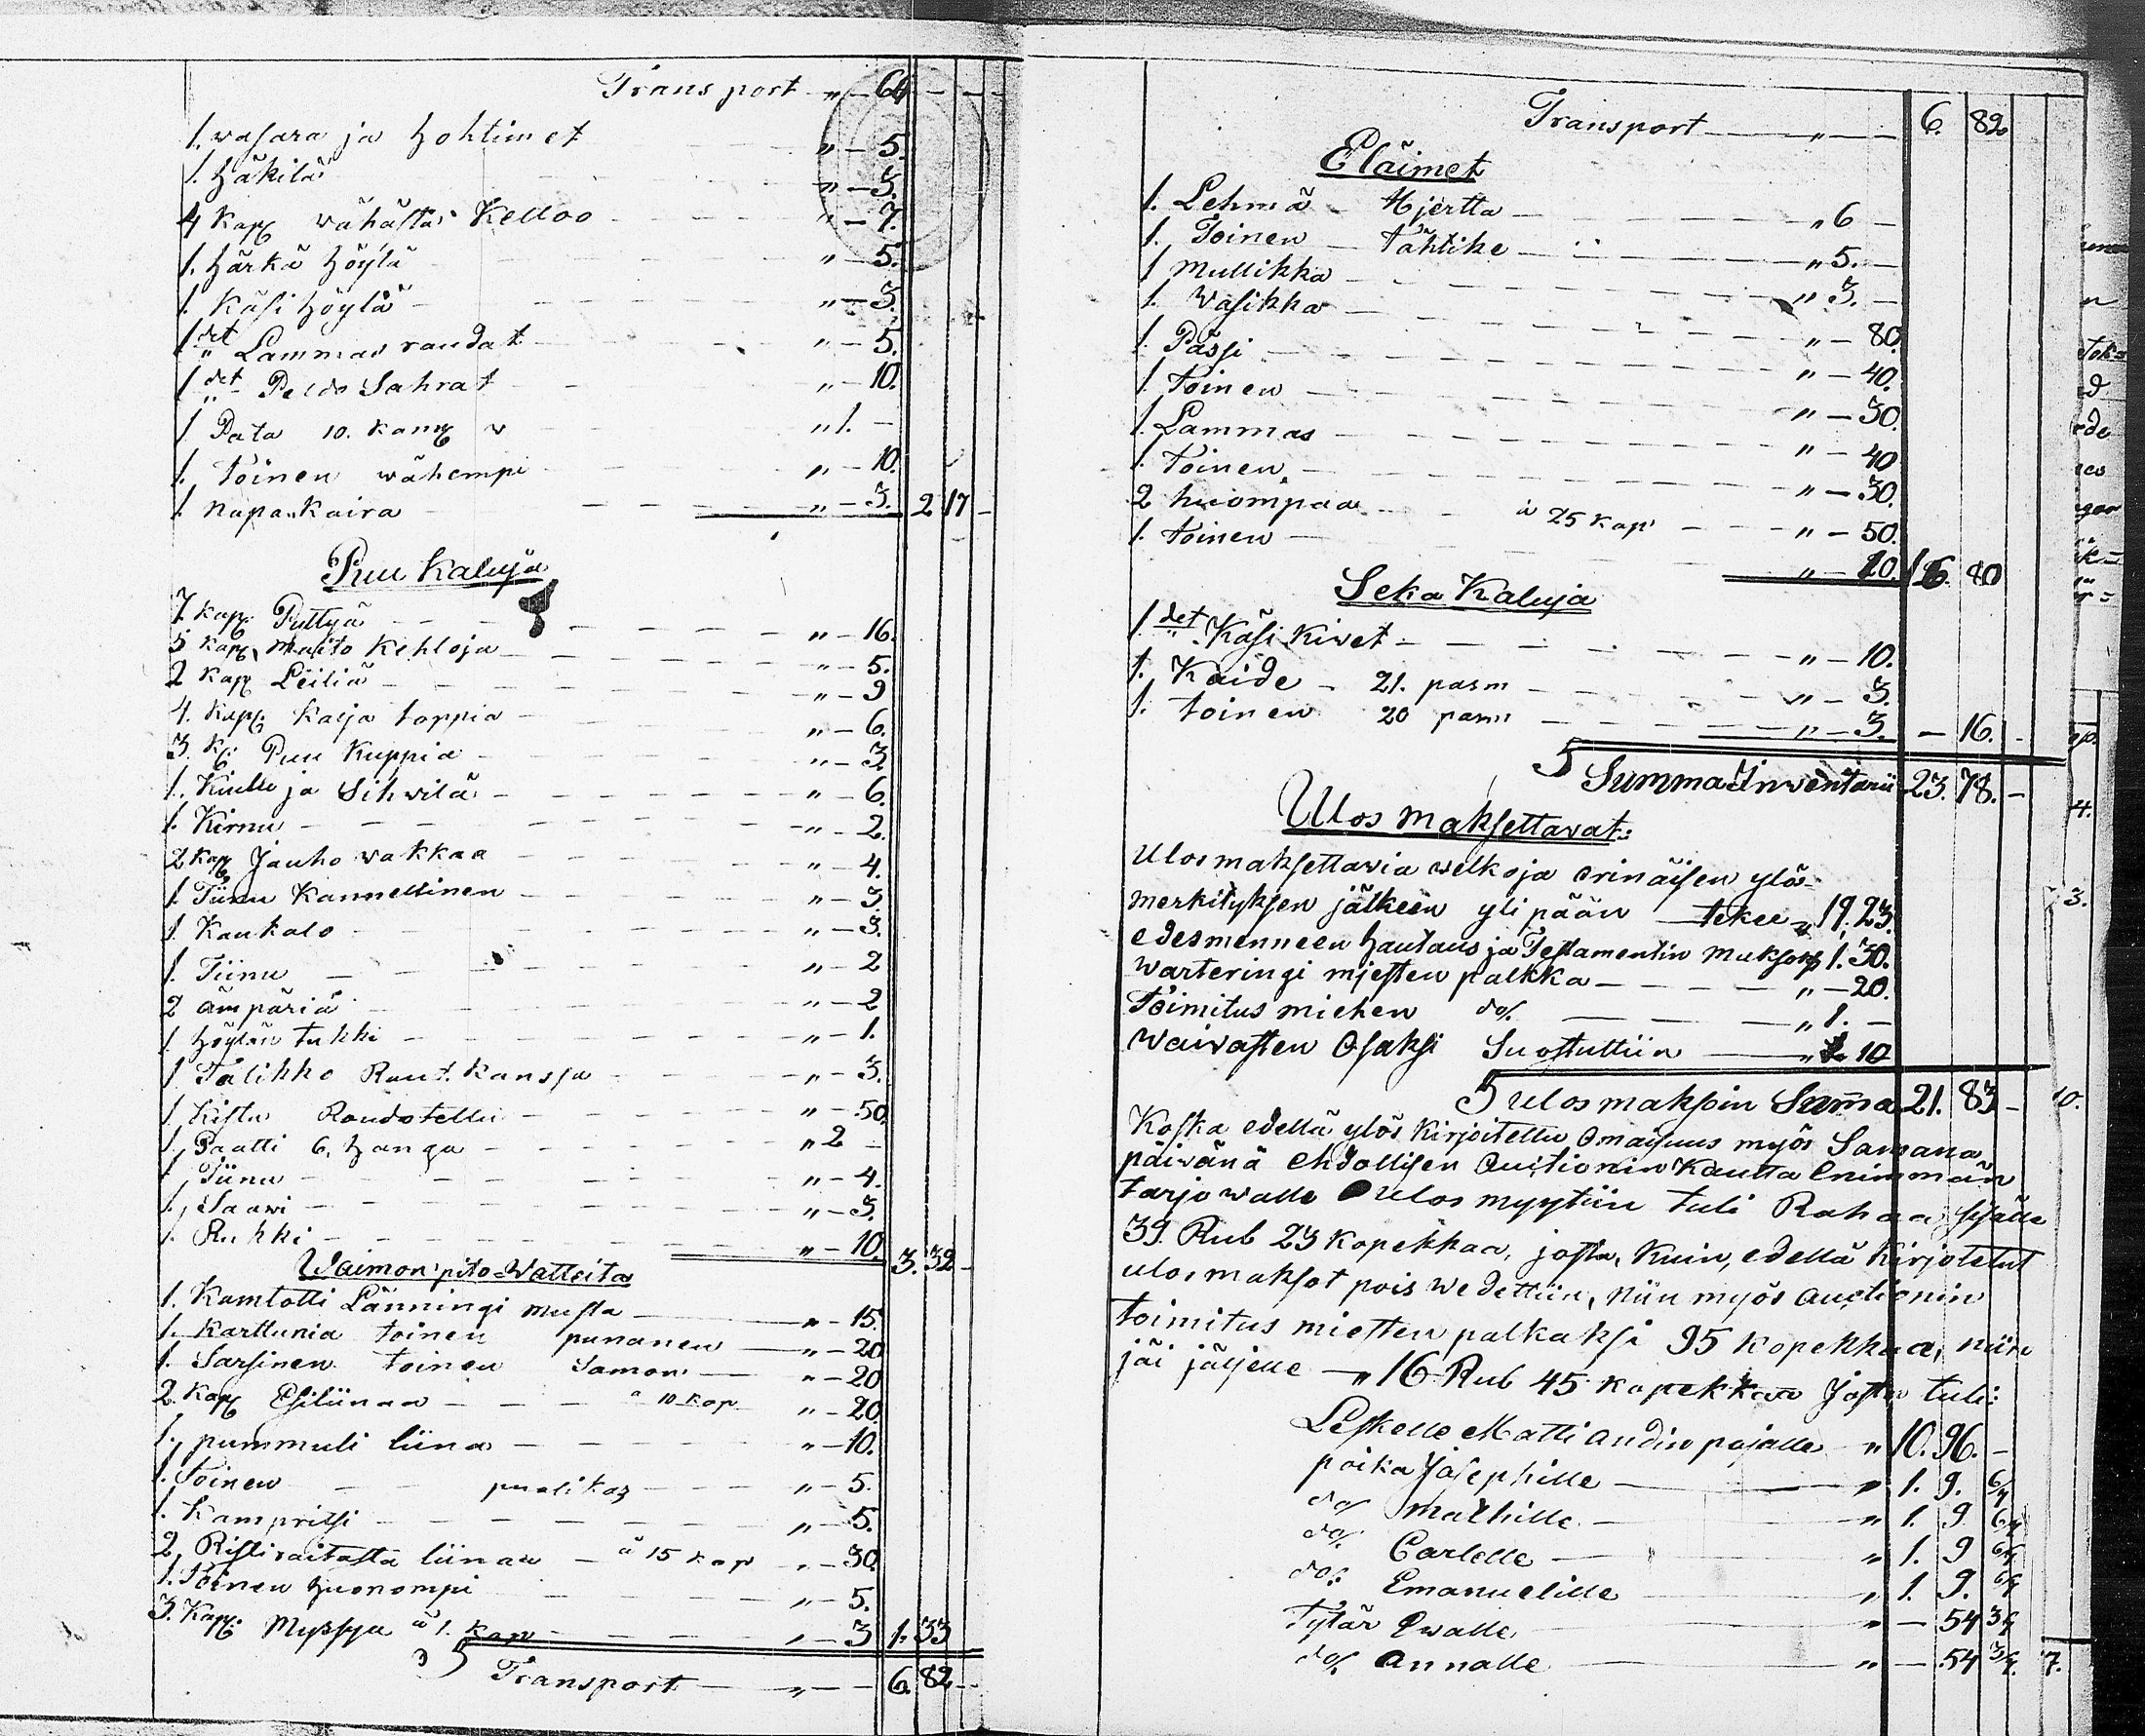 Transport — " — 64 — — —
1. wasara ja hohtimet " — 5.
1. häkilä " — 3.
4 Kap. wähästä Kelloo " — 7.
1. härkä höylä " — 5.
1. Käsi höylä " — 3.
1 det " Lammas raudat " — 5.
1 det " Peldo Sahrat " — 10.
1 Pata 10. kann " 1. —
1. toinen wähempi " — 10.
1 napa Kaira " — 3. 2 17 —
Puu Kaluja
7 Kap. Pyttyä " — 16.
5 Kap. Maito Kehloja " — 5.
2 Kap Leiliä " — 9
4. Kap. Kalja toppia " — 6.
3. K. Puu Kuppia " — 3.
1. Kiulu ja Sihwilä " — 6.
1. Kirnu " — 2.
2 Kap Jauho wakkaa " — 4.
1. Tiinu Kannellinen " — 3
1. Kaukalo " — 3.
1. Tiinu " — 2
2 ämpäriä " — 2
1. höylän tukki " — 1.
1. Talikko Raut. kanssa " — 3.
1. Kistu Raudotettu " — 50.
1. Paatti 6. hanga " 2 —
1. Tiinu " — 4.
1. Saawi " — 3.
1. Rukki " — 10. 3. 32 —
Waimon pito-Watteita
1. Kamlotti Länningi musta " — 15.
1. Karttunia toinen punanen " — 20
1. Sarsinen toinen Samon " — 20
2. Kap Esiliinaa à 10 kop " — 20.
1. pummuli liina " — 10.
1. Toinen puolikas " — 5.
1. Kampritsi " — 5.
2. Ristiraitasta liinaa à 15 kop " — 30.
1. Toinen huonompi " — 5.
3. Kap. Myssyä à 1. kop " — 3 1. 33
Transport — " — 6. 82 —
Transport — " — 6. 82
Eläimet
1. Lehmä — Hjertta " 6 —
1. Toinen — tähtike " 5. —
1 Mullikka " 3. —
1. Wasikka " — 80.
1. Pässi " — 40.
1. toinen " — 30.
1. Lammas " — 40
1. toinen " — 30.
2 huompaa à 25 kop " — 50.
1. toinen " — 20. 16. 80
Seka Kaluja
1 det " Käsi kivet " — 10.
1. Kaide — 21. pasm " — 3.
1. toinen 20 pasm " — 3. — 16. —
Summa Inventarii 23. 78. —
Ulos maksettavat:
Ulosmaksettavia welkoja erinäisen ylös
merkityksen jälkeen yli pään tekee " 19. 23.
edesmenneen hautaus ja Testamentin maksot 1. 30.
Warteringi miesten palkka " — 20.
Toimitus miehen do/. " 1. —
Waivasten Osaksi Suostuttiin " 10
ulos maksoin Suma 21. 83 —
Koska edellä ylös kirjoitettu Omaisuus myös Samana
päivänä ehdollisen Auctionin kautta Enimmän
tarjowalle ulos myytiin tuli Rahaa sisälle
39. Rub 23 kopekkaa, josta, Kuin, edellä kirjotetut
ulosmaksot pois wedettiin, niin myös auctionin
toimitus miesten palkaksi 95 kopekkaa, niin
jäi jäljelle — " 16 Rub 45 kopekkaa Josta tuli:
Leskelle Matti andin pojalle " 10. 96. —
poika Josephille " 1. 9. 6/7
do/ Mathille " 1. 9 6/7
do/. Carlelle " 1. 9 6/7
do/. Emanuelille " 1. 9. 6/7
Tytär Ewalle " — 54 3/7
do/. Annalle " — 54 3/7.